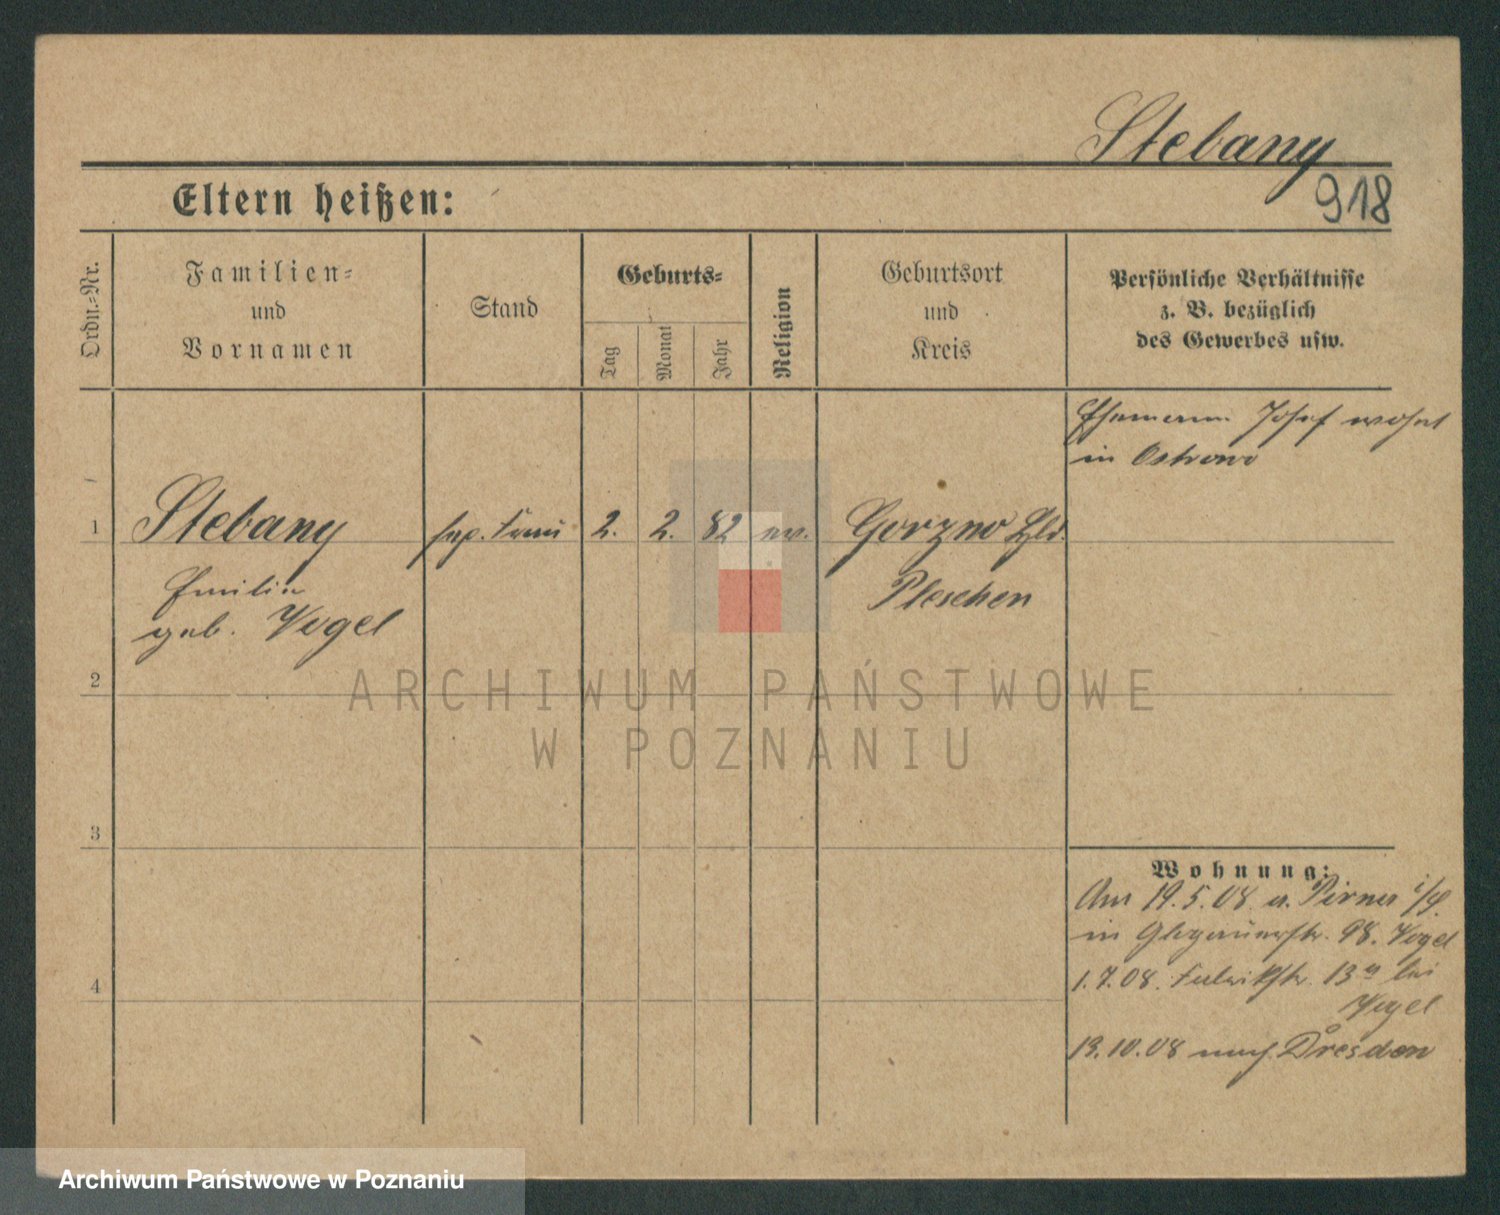 Stebany
918
Eltern heißen:
Ordn.-Nr.
Familien-
und
Vornamen
Stand
Geburts-
Tag
Monat
Jahr
Religion
Geburtsort
und
Kreis
Persönliche Verhältnisse
z. B. bezüglich
des Gewerbes usw.
Ehemann Josef wohnt
in Ostrowo
1
Stebany
sep. Frau
2.
2.
82
ev.
Gorzno Hld.
Emilie
Pleschen
geb. Vogel
2
ARCHIWUM PAŃSTWOWE
W POZNANIU
3
Wohnung:
Am 19.5.08 a. Pirna i/S.
in Glogauerstr. 98. Vogel
4
1.7.08. Fabrikstr. 13 bei
Vogel
13.10.08 nach Dresden
Archiwum Państwowe w Poznaniu